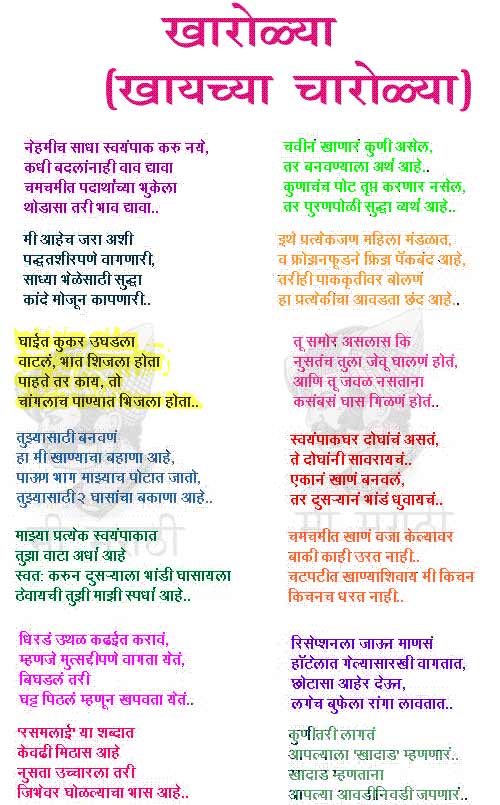 खारोळ्या
(खायच्या चारोळ्या)
नेहमीच साधा स्वयंपाक करु नये,
कधी बदलांनाही वाव द्यावा
चमचमीत पदार्थांच्या भुकेला
थोडासा तरी भाव द्यावा..
मी आहेच जरा अशी
पद्धतशीरपणे वागणारी,
साध्या भेळेसाठी सुद्धा
कांदे मोजून कापणारी..
घाईत कुकर उघडला
वाटलं, भात शिजला होता
पाहते तर काय, तो
चांगलाच पाण्यात भिजला होता..
तुझ्यासाठी बनवणं
हा मी खाण्याचा बहाणा आहे,
पाऊण भाग माझ्याच पोटात जातो,
तुझ्यासाठी २ घासांचा बकाणा आहे..
माझ्या प्रत्येक स्वयंपाकात
तुझा वाटा अर्धा आहे
स्वत: करुन दुसऱ्याला भांडी घासायला
ठेवायची तुझी माझी स्पर्धा आहे..
धिरडं उथळ कढईत करावं,
म्हणजे मुत्सद्दीपणे वागता येतं,
बिघडलं तरी
घट्ट पिठलं म्हणून खपवता येतं..
'रसमलाई' या शब्दात
केवढी मिठास आहे
नुसता उच्चारला तरी
जिभेवर घोळल्याचा भास आहे..
चवीनं खाणारं कुणी असेल,
तर बनवण्याला अर्थ आहे..
कुणाचंच पोट तृप्त करणार नसेल,
तर पुरणपोळी सुद्धा व्यर्थ आहे..
इथे प्रत्येकजण महिला मंडळात,
व फ्रोझनफूडने फ्रिझ पॅकबंद आहे,
तरीही पाककृतीवर बोलणं
हा प्रत्येकीचा आवडता छंद आहे..
तू समोर असलास कि
नुसतंच तुला जेवू घालणं होतं,
आणि तू जवळ नसताना
कसंबसं घास गिळणं होतं..
स्वयंपाकघर दोघांचं असतं,
ते दोघांनी सावरायचं..
एकानं खाणं बनवलं,
तर दुसऱ्यानं भांडं धुवायचं..
चमचमीत खाणं वजा केल्यावर
बाकी काही उरत नाही..
चटपटीत खाण्याशिवाय मी किचन
किचनच धरत नाही..
रिसेप्शनला जाऊन माणसं
हॉटेलात गेल्यासारखी वागतात,
छोटासा आहेर देऊन,
लगेच बुफेला रांगा लावतात..
कुणीतरी लागतं
आपल्याला 'खादाड' म्हणणारं..
खादाड म्हणताना
आपल्या आवडीनिवडी जपणारं..
मी मराठी
मी मराठी